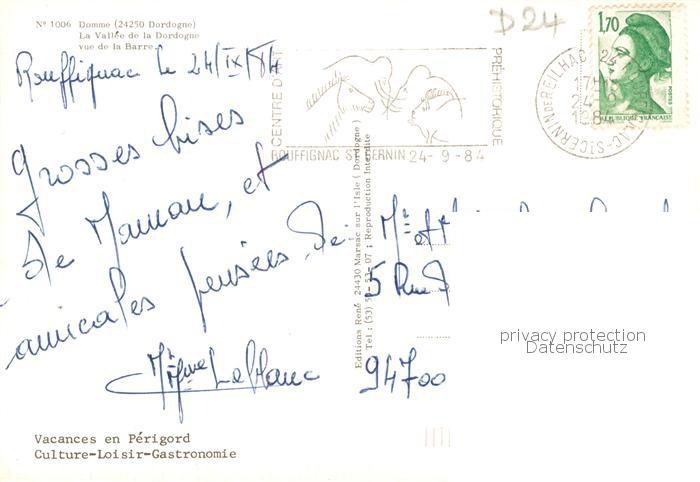 Nº 1006 Domme (24250 Dordogne)
La Vallée de la Dordogne
vue de la Barre
D 24
Rouffignac le 24/IX/84
Grosses bises
de Maman, et
amicales pensées de
Mr Mme Leblanc
CENTRE D'ART
PREHISTORIQUE
ROUFFIGNAC ST CERNIN 24-9-84
Editions René 24430 Marsac sur l'Isle (Dordogne)
Tel : (53) 07 ; Reproduction Interdite
1,70
REPUBLIQUE FRANCAISE
POSTES
ST CERNIN DE REILHAC
17H
24-9
1984
Mr et
5 Rue
94700
privacy protection
Datenschutz
Vacances en Périgord
Culture-Loisir-Gastronomie